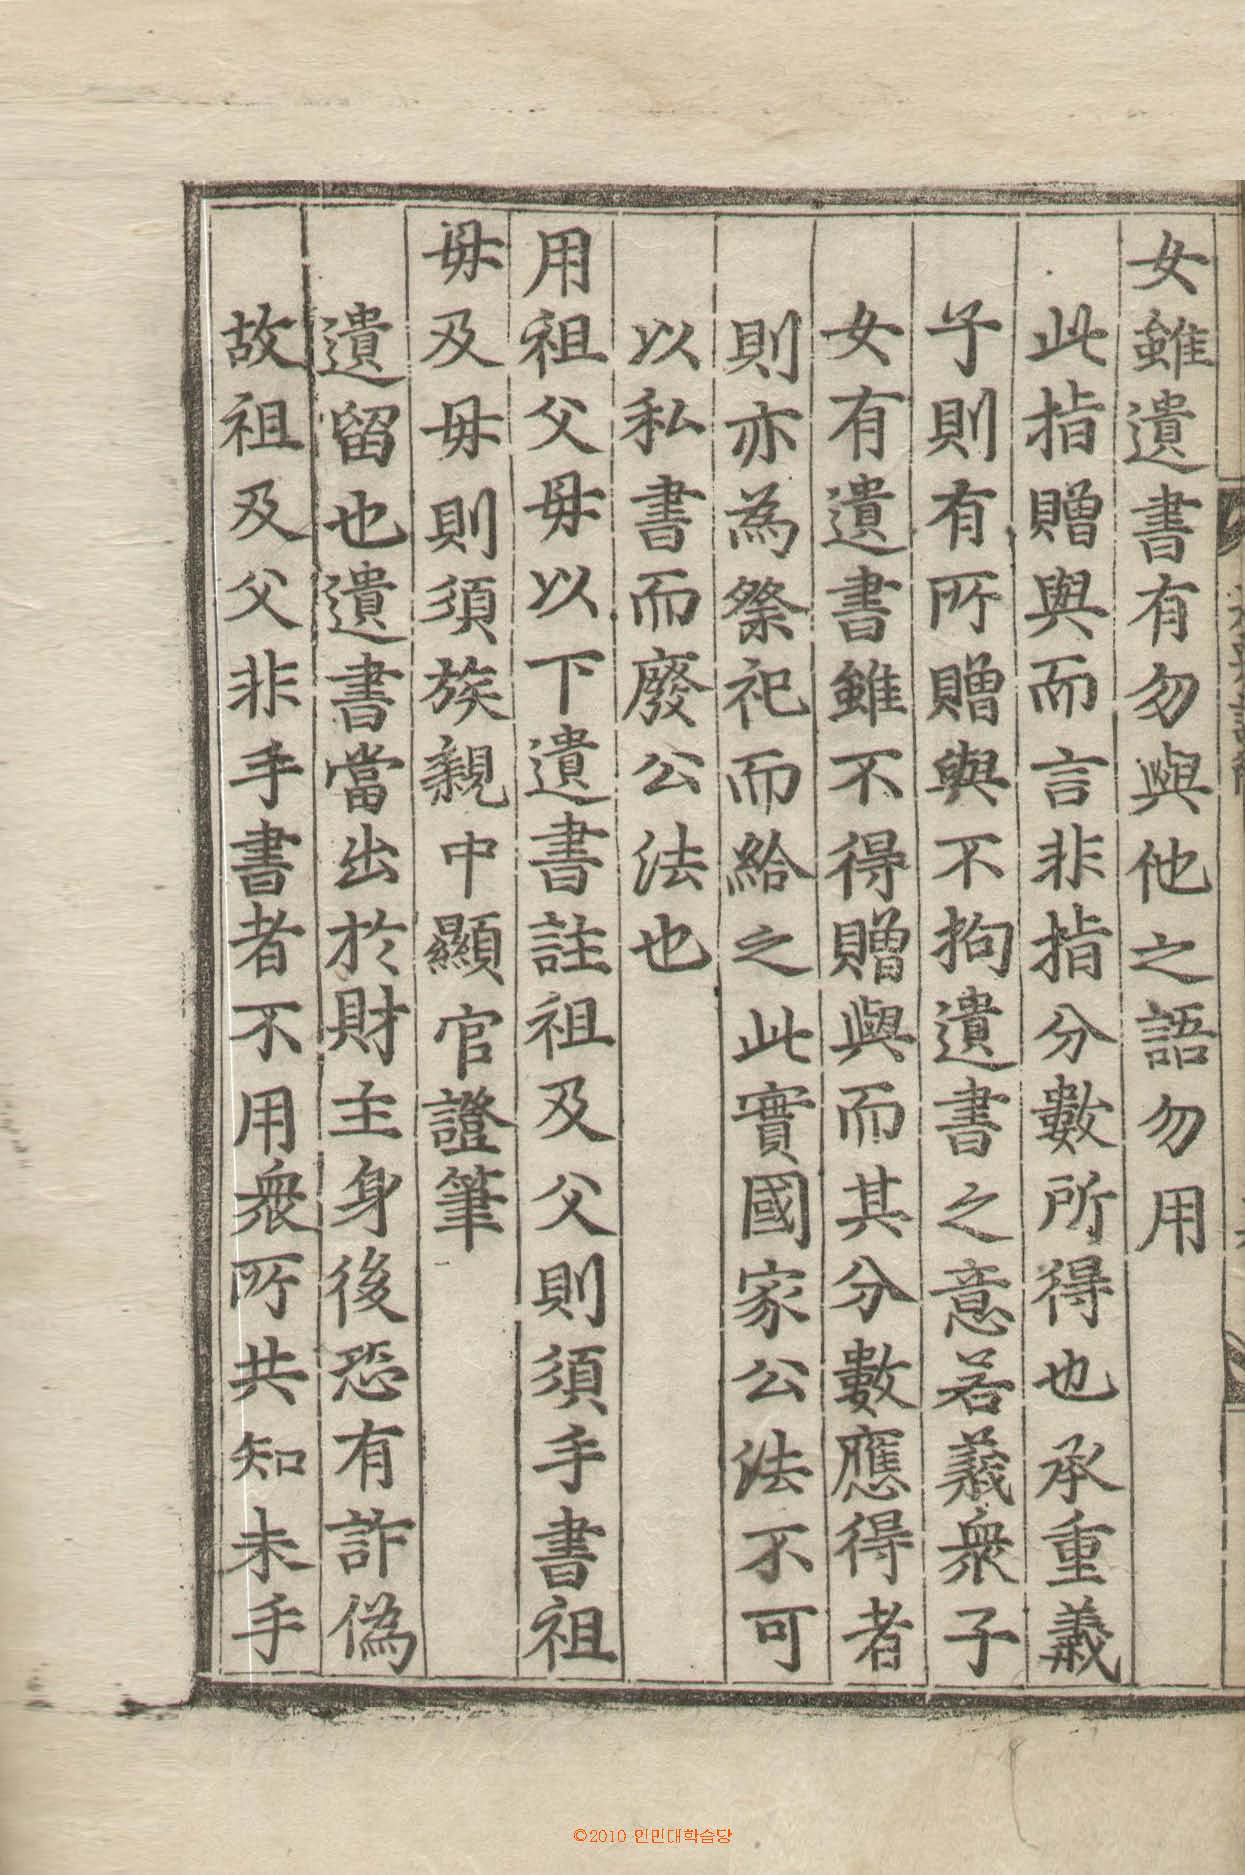 女雖遺書有勿與他之語勿用
此指贈與而言非指分數所得也承重義
子則有所贈與不拘遺書之意若義衆子
女有遺書雖不得贈與而其分數應得者
則亦為祭祀而給之此實國家公法不可
以私書而廢公法也
用祖父毋以下遺書註祖及父則須手書祖
毋及毋則須族親中顯官證筆
遺留也遺書當出於財主身後恐有詐偽
故祖及父非手書者不用衆所共知未手
©2010 인민대학습당